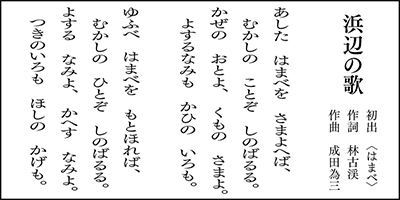 浜辺の歌
初出 〈はまべ〉
作詞 林古渓
作曲 成田為三
あした はまべを さまよへば、
むかしの ことぞ しのばるる。
かぜの おとよ、くもの さまよ。
よするなみも かひの いろも。
ゆふべ はまべを もとほれば、
むかしの ひとぞ しのばるる。
よする なみよ、かへす なみよ。
つきのいろも ほしの かげも。